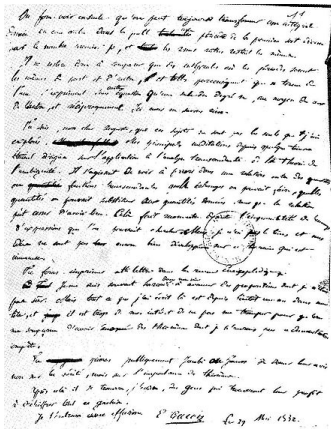 On fera voir ensuite qu'on peut toujours transformer une intégrale
donnée en une autre dans laquelle une période de la première soit divisée
par le nombre premier p, et les autres restent les mêmes.
Il ne restera donc à comparer que des intégrales où les périodes seront
les mêmes de part et d'autre, et telles par conséquent que n termes de
l'une s'expriment sans autre équation qu'une seule du degré n, au moyen de ceux
de l'autre, et réciproquement. Ici nous ne savons rien.
Tu sais, mon cher Auguste, que ces sujets ne sont pas les seuls que j'aie
explorés. Mes principales méditations depuis quelque temps
étaient dirigées sur l'application à l'analyse transcendante de la théorie de
l'ambiguité. Il s'agissait de voir à priori dans une relation entre des quantités
ou fonctions transcendantes quels échanges on pouvait faire, quelles
quantités on pouvait substituer aux quantités données sans que la relation
put cesser d'avoir lieu. Cela fait reconnaitre l'impossibilité de beaucoup
d'expressions que l'on pourrait chercher. Mais je n'ai pas le tems et mes
idées ne sont pas encore bien développées sur ce terrain qui est
immense.
Tu feras imprimer cette lettre dans la revue encyclopédique.
Je me suis souvent hasardé dans ma vie à avancer des propositions dont je n'étais
pas sûr. Mais tout ce que j'ai écrit là est depuis bientôt un an dans ma
tête, et il est trop de mon intérêt de ne pas me tromper pour qu'on
me soupçonne d'avoir énoncé des théorèmes dont je n'aurais pas la démonstration
complète.
Tu prieras publiquement Jacobi ou Gauss de donner leur avis
non sur la vérité, mais sur l'importance des théorèmes.
Après cela il se trouvera, j'espère, des gens qui trouveront leur profit
à déchiffrer tout ce gâchis.
Je t'embrasse avec effusion E Galois Le 29 Mai 1832.